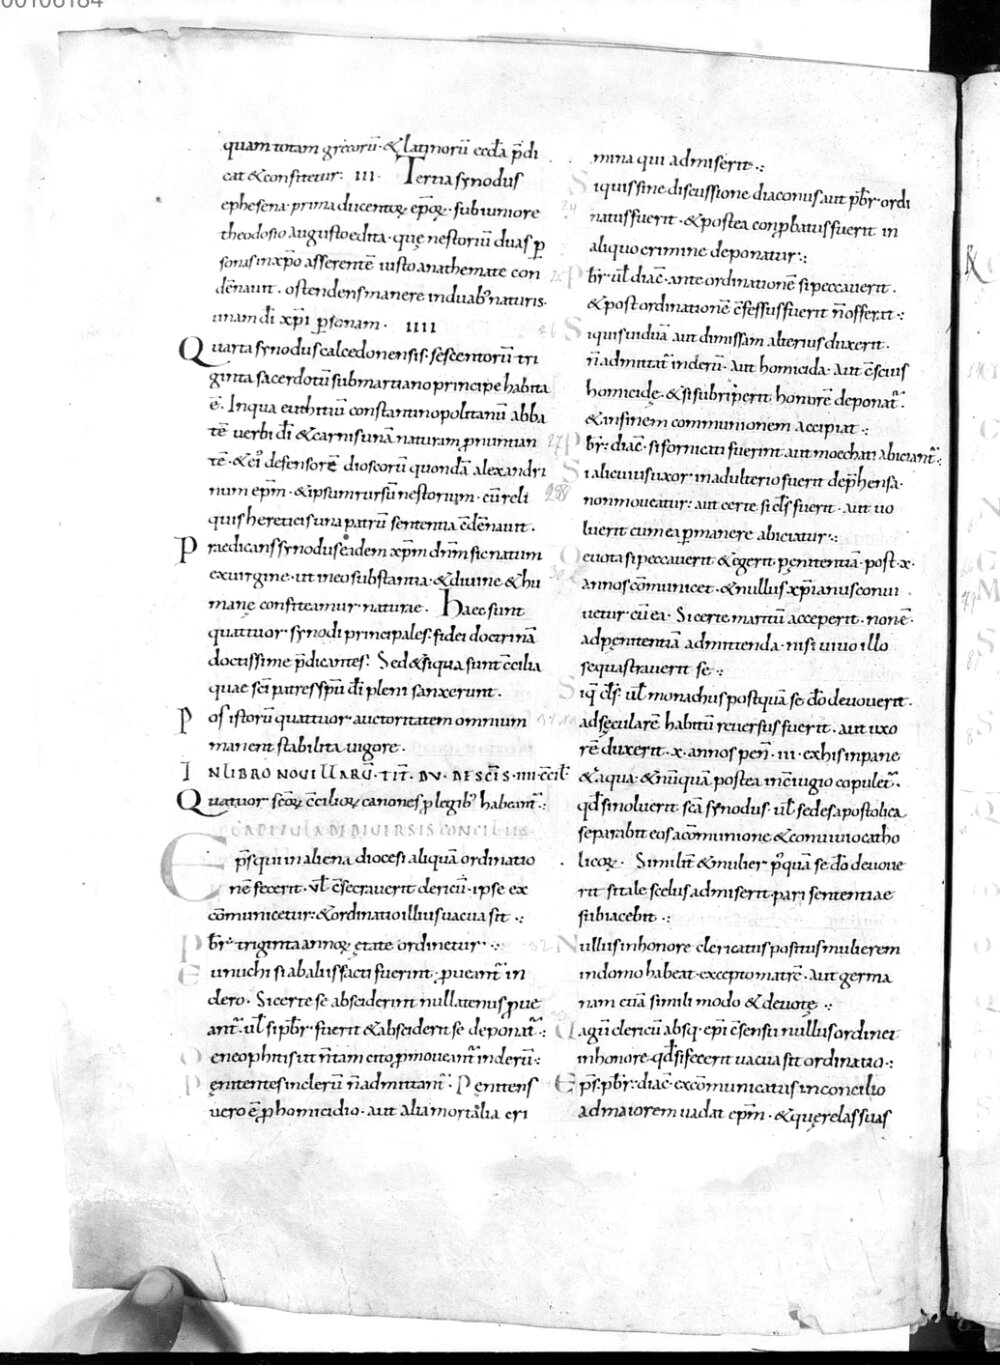 00106184
quam totam grecorū · & latinorū eccła p̄di
cat & confitetur: III · Tertia synodus
ephesena · prima ducentoꝝ ep̄oꝝ · sub iuniore
theodosio augusto edita · quę nestoriū duas ꝑ
sonas in xp̄o asserentē iusto anathemate con
dēnauit . ostendens manere in duabꝰ naturis
unam dī xp̄i ꝑsonam · IIII
Quarta synodus calcedonensis · sescentorū tri
ginta sacerdotū sub martiano principe habita
ē . In qua euthitiū constantinopolitanū abba
tē uerbi dī & carnis unā naturam ꝓnuntian
tē · & eiꝰ defensorē dioscorū quondā alexandri
num ep̄m · & ipsum rursū nestorium · cū reli
quis hereticis una patrū sententia c̄dēnauit .
Praedicans synodus eadem xp̄m dn̄m sic natum
ex uirgine · ut in eo substantia · & diuine & hu
manę confiteamur naturae . Haec sunt
quattuor synodi principales · fidei doctrinā
doctissime p̄dicantes: Sed & siqua sunt c̄cilia
quae sc̄i patres sp̄u dī pleni sanxerunt .
Pos istorū quattuor auctoritatem omnium
manent stabilita uigore .
IN LIBRO NOVILLARŪ · TIT̄ · DV · DE SC̄IS · IIII · C̄CIL̄
Quatuor sc̄oꝝ c̄cilioꝝ canones ꝓ legibꝰ habeant̄ .:
CAPITULA DE DIVERSIS CONCILIIS
Ep̄s qui in aliena diocesi aliquā ordinatio
nē fecerit · ul̄ c̄secrauerit clericū · ipse ex
cōmunicetur: & ordinatio illius uacua sit .:
Pb̄r triginta annoꝝ ętate ordinetur .:
Eunuchi si ab aliis facti fuerint · ꝓueant̄ in
clero . Si certe se absciderint nullatenus ꝓue
ant̄ · ul̄ si pb̄r fuerit & absciderit se deponat̄ .:
neophitis ut n̄tam cito ꝓmoueant̄ in clerū .:
Penitentes in clerū n̄ admittant̄ . Penitens
uero ē ꝓ homicidio · aut alia mortalia cri
mina qui admiserit .:
Si quis sine discussione diaconus aut pb̄r ordi
24
natus fuerit · & postea conꝓbatus fuerit in
aliquo crimine deponatur .:
Pb̄r · ul̄ diac̄ · ante ordinationē si peccauerit .
& post ordinationē c̄fessus fuerit n̄ offerat .:
26
Si quis uiduā aut dimissam alterius duxerit .
n̄ admittat̄ in clerū · aut homicida · aut c̄scius
homicidę · & si subripuerit honorē deponat̄ .
& in finem communionem accipiat .:
27
Pb̄r · diac̄ · si fornicati fuerint aut moechati abiciant̄ .:
Si alicuius uxor in adulterio fuerit dep̄hensa ·
28
non moueatur: aut certe si cl̄s fuerit · aut uo
luerit cum ea ꝑmanere abiciatur .:
Deuota si peccauerit & egerit pęnitentiā · post · x ·
30
annos cōmunicet · & nullus xp̄ianus conui
uetur cū ea · Si certe maritū acceperit · non ē ·
ad pęnitentiā admittenda · nisi uiuo illo
sequastrauerit se .:
Si q̄ cl̄s · ul̄ monachus postquā se dō deuouerit .
ad sęcularē habitū reuersus fuerit · aut uxo
rē duxerit · x · annos pen̄ · iii · ex his in pane
& aqua · & nūquā postea in c̄iugio copulet̄ .
qd̄ si noluerit sc̄a synodus · ul̄ sedes apostolica
separabit eos a cōmunione & conuiuio catho
licoꝝ · Similit̄ & mulier pꝰquā se dō deuoue
rit si tale scelus admiserit · pari sententiae
subiacebit .:
Nullus in honore clericatus positus mulierem
in domo habeat · excepto matrē · aut germa
nam cuā simili modo & deuotę .:
agū clericū absq · ep̄i c̄sensu nullus ordinet
in honore · qd̄ si fecerit uacua sit ordinatio .:
Ep̄s · pb̄r · diac̄ · excōmunicatus in concilio
ad maiorem uadat ep̄m · & quęrelas suas